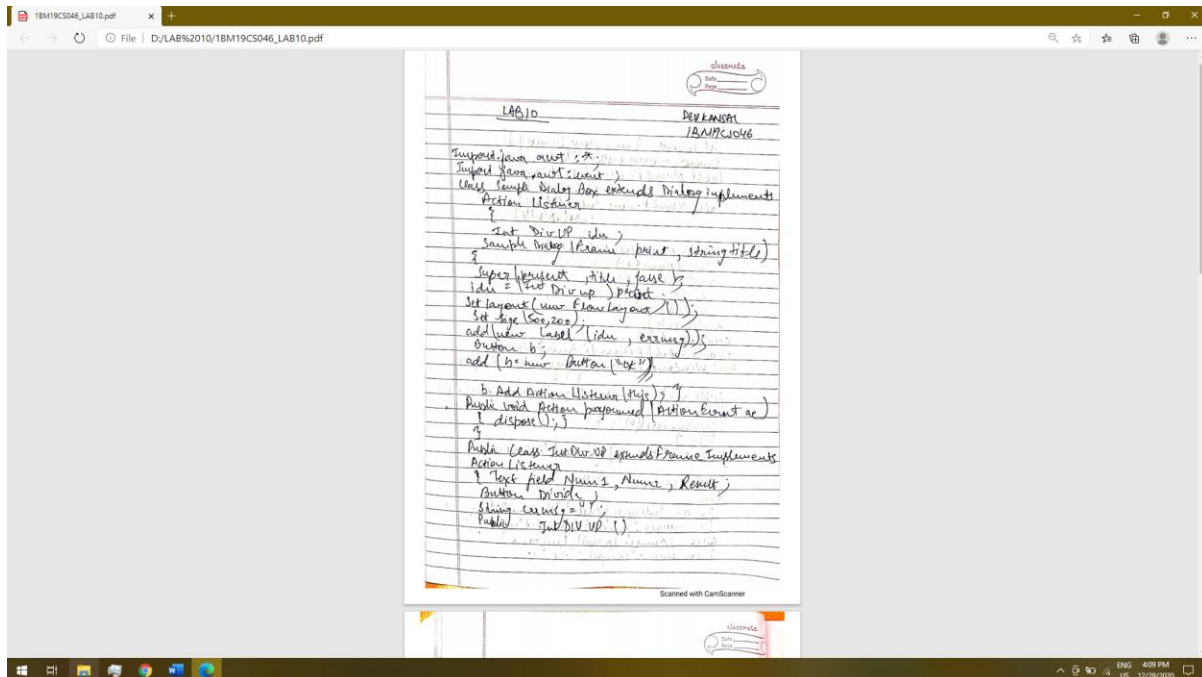 1BM19CS046_LAB10.pdf
File | D:/LAB%2010/1BM19CS046_LAB10.pdf
classmate
Date
Page
LAB10
DEV KANSAL
1BM19CS046
Import java awt . *;
Import java.awt.event ;
Class Sample Dialog Box extends Dialog implements
Action Listener
{
Int DivUP idu ;
Sample Dialog (Frame , string title)
{
Super ( , title , false );
idu = (Int Div up )
Set layout (new Flow Layout ());
Set Size (500,200);
add (new Label (idu , errmsg));
Button b;
add (b= new Button ("OK"))
b. Add Action Listener (this); }
Public void Action (Action Event ae)
{ dispose(); }
}
Public Class Int Div UP extends Frame Implements
Action Listener
{ Text field Num1, Num2, Result;
Button Divide ;
String errmsg = " ";
Public Int DIV UP ()
Scanned with CamScanner
classmate
Date
Page
ENG
US
4:09 PM
12/29/2020